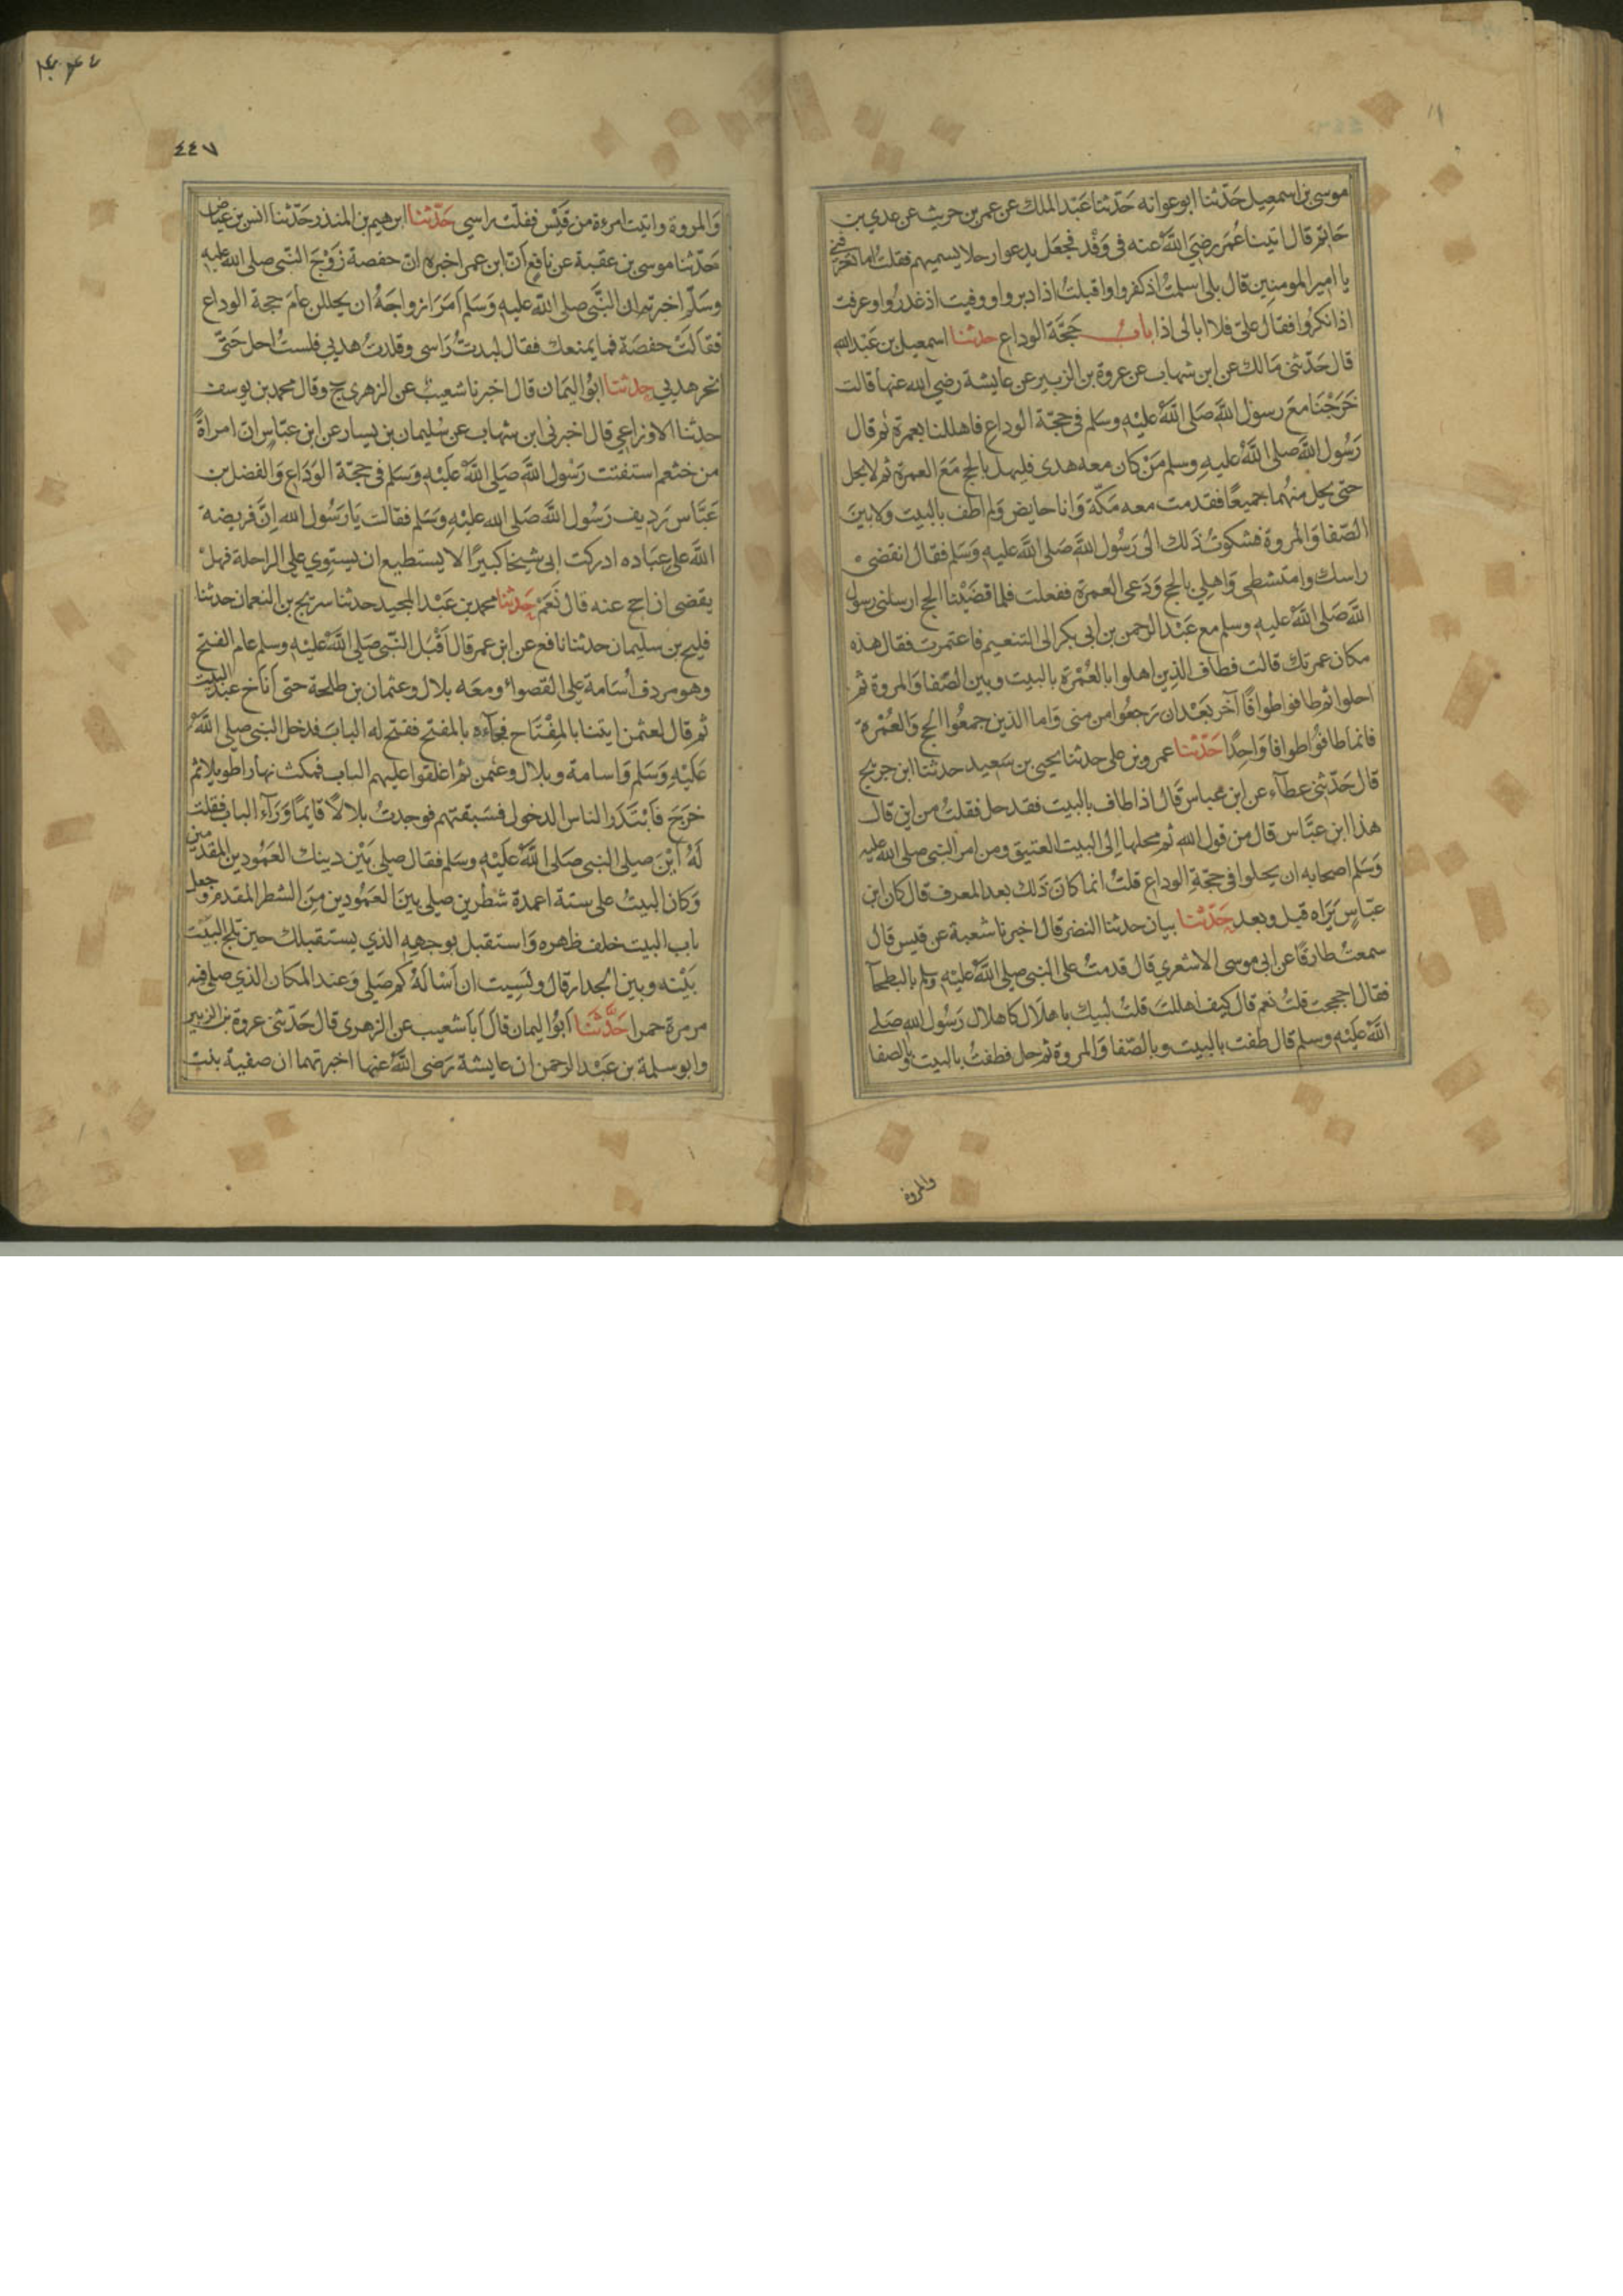 موسى بن اسمعيل حدّثنا ابو عوانه حَدّثنا عَبْد الملك عن عمر بن حريث عن عدي بن
حَاتِمٍ قال اتينا عُمَر رضي اللهُ عنه فى وَفْد فجعَل يدعوا رجلا يسميهم فقلتُ اما تعرفني
يا امير المومنين قال بلى اسلمتُ اذ كفروا واقبلتُ اذ ادبروا ووفيت اذ غدرُوا وعرفت
اذ انكرُوا فقال علىّ فلا ابالى اذا بابُ حَجَّة الوداع حدثنا اسمعيل بن عَبْد الله
قال حَدّثنى مَالك عن ابن شهاب عن عروة بن الزبير عن عايشة رضي الله عنها قالت
خَرَجْنا معَ رسول اللهِ صَلى اللهُ عليْهِ وسَلم فى حجّة الوداع فاهللنا بعمرة ثم قال
رَسُول اللهِ صلى اللهُ عليهِ وسلم مَنْ كان معه هدى فليهل بالحج مَعَ العمرة ثم لا يحل
حتى يحل منهُما جميعًا فقدمت معه مَكّة وَانا حايض وَلم اطف بالبيت ولا بين
الصّفا وَالمروة فشكوتُ ذلك الى رَسُول اللهِ صَلى اللهُ عليهِ وَسَلم فقال انقضى
راسك وامتشطى وَاهلي بالحج وَدَعى العمرة ففعلت فلما قضَيْنا الحج ارسلنى رسول
اللهِ صَلى اللهُ عليهِ وسلم مع عَبْد الرحمن بن ابى بكر الى التنعيم فاعتمرت فقال هذه
مكان عمرتك قالت فطاف الذين اهلوا بالعُمْرَة بالبيت وبين الصّفا وَالمروة ثم
احلوا ثم طافوا طوافًا آخر بعْد ان رَجعُوا من منى وَاما الذين جمعُوا الحج وَالعُمْرة
فانما طافوا طوافا وَاحِدًا حَدّثنا عمرو بن على حدثنا يحيى بن سَعيد حدثنا ابن جريج
قال حَدّثنى عطآء عن ابن عباس قال اذا طاف بالبيت فقد حل فقلتُ من اين قال
هذا ابن عبَّاس قال من قول الله ثم محلها اِلى البيت العتيق ومن امر النبى صلى الله عليه
وَسَلم اصحابه ان يحلوا فى حجّة الوداع قلتُ انما كانَ ذَلك بعد المعرف قال كان ابن
عبّاسٍ يَرَاه قبل وبعد حَدّثنا بيان حدثنا النضر قال اخبرنا شعبة عن قيس قال
سمعتُ طارقًا عن ابى موسى الاشعري قال قدمتُ على النبى صلى اللهُ عليْهِ وسلم بالبطحآ
فقال احججت قلتُ نعم قال كيف اهللتَ قلتُ لبيك باهلال كاهلال رَسُول الله صَلى
اللهُ عليْهِ وسلم قال طفت بالبيت وبالصّفا وَالمروة ثم حل فطفتُ بالبيت وبالصفا
والمروة
٤٤٧
وَالمروة واتيت امرءة من قَيْس ففلت راسي حَدّثنا ابرهيم بن المنذر حَدّثنا انس بن عياض
حَدّثنا موسى بن عقبة عن نافع اَنّ ابن عمر اخبره ان حفصة زَوْجَ النّبى صلى الله عليه
وسَلّم اخبرته ان النَّبى صلى اللهُ عليهِ وَسَلم اَمَرَ ازواجَهُ ان يحللن عامَ حجة الوداع
فقالَتْ حفصَة فما يمنعك فقال لبدتُ رَاسى وقلدتُ هديي فلستُ احل حَتىّ
انحر هديي حدثنا ابُو اليمَان قال اخبرنا شعيبٌ عن الزهرى ح وقال محمد بن يوسف
حدثنا الاوزاعي قال اخبرنى ابن شهاب عن سُليمان بن يسار عن ابن عبّاسٍ ان امراةً
من خثعم استفتت رَسُول اللهِ صَلى اللهُ عليْهِ وَسَلم فى حجّة الوَدَاع وَالفضل بن
عَبَّاس رَدِيف رَسُول اللهِ صَلى الله عليْهِ وَسَلم فقالت يَا رَسُول الله اِنَّ فريضة
اللهِ على عبَاده ادركت ابى شيخا كبيرًا لا يستطيع ان يستوي على الراحلة فهل
يقضى ان احج عنه قال نَعَمْ حَدثنا محمد بن عَبْد المجيد حدثنا سريج بن النعمان حدثنا
فليح بن سليمان حدثنا نافع عن ابن عمر قال اَقْبَل النّبى صَلى اللهُ عليْهِ وسلم عام الفتح
وهو مردف اُسَامة على القصواء ومعَه بلال وعثمان بن طلحة حتى اَنَاخ عند البيت
ثم قال لعثمن ايتنا بالمِفْتَاح فجآءه بالمفتح ففتح له البابَ فدخل النبى صلى اللهُ
عَليْهِ وَسَلم وَاسامة وبلال وعثمن ثم اغلقوا عليهم الباب فمكث نهارا طويلا ثم
خرَجَ فَابْتَدَرَ الناس الدخول فسَبقتهم فوجدتُ بلالاً قايمًا وَرَآء الباب فقلت
لهُ اَيْنَ صلى النبى صَلى اللهُ عليْهِ وسَلم فقال صلى بَيْن ذينك العَمُودين المقدمين
وَكان البيتُ على ستة اعمدة شطرين صلى بينَ العَمُودين مِنَ الشطر المقدم وجعل
باب البيت خلف ظهره وَاستقبل بوجهِه الذي يستقبلك حين تلج البَيْت
بَيْنه وبين الجدار قال ونَسِيت ان اَسْالهُ كم صَلى وَعند المكان الذي صلى فيه
مرمرة حمرا حَدَّثَنَا اَبُو اليمان قال اَبَا شعيب عن الزهرى قال حَدّثنى عروة بن الزبير
وابو سلمة بن عَبْد الرحمن ان عايشة رَضى اللهُ عنها اخبرتهما ان صفية بنت